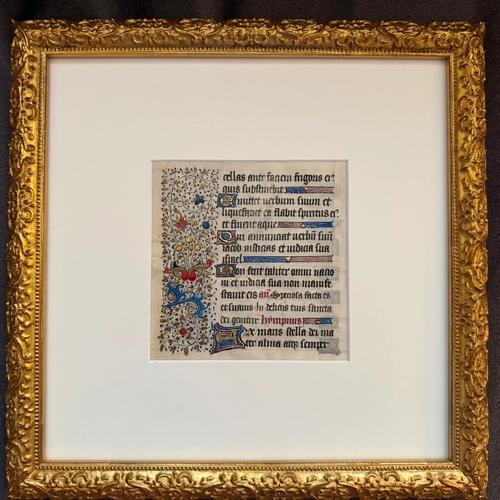 cellas ante faciem frigoris ei9
quis sustinebit
Emittet verbum suum et
liquefaciet ea flabit spiritus ei9
et fluent aque
Qui annunciat verbū suū
iacob iusticias et iudicia sua
israel
Non fecit taliter omni nacio
ni et iudicia sua non manife
stavit eis añ Speciosa facta es
et suavis In deliciis tuis sancta
dei genitrix hympnus
Ave maris stella dei ma
ter alma atqz semper